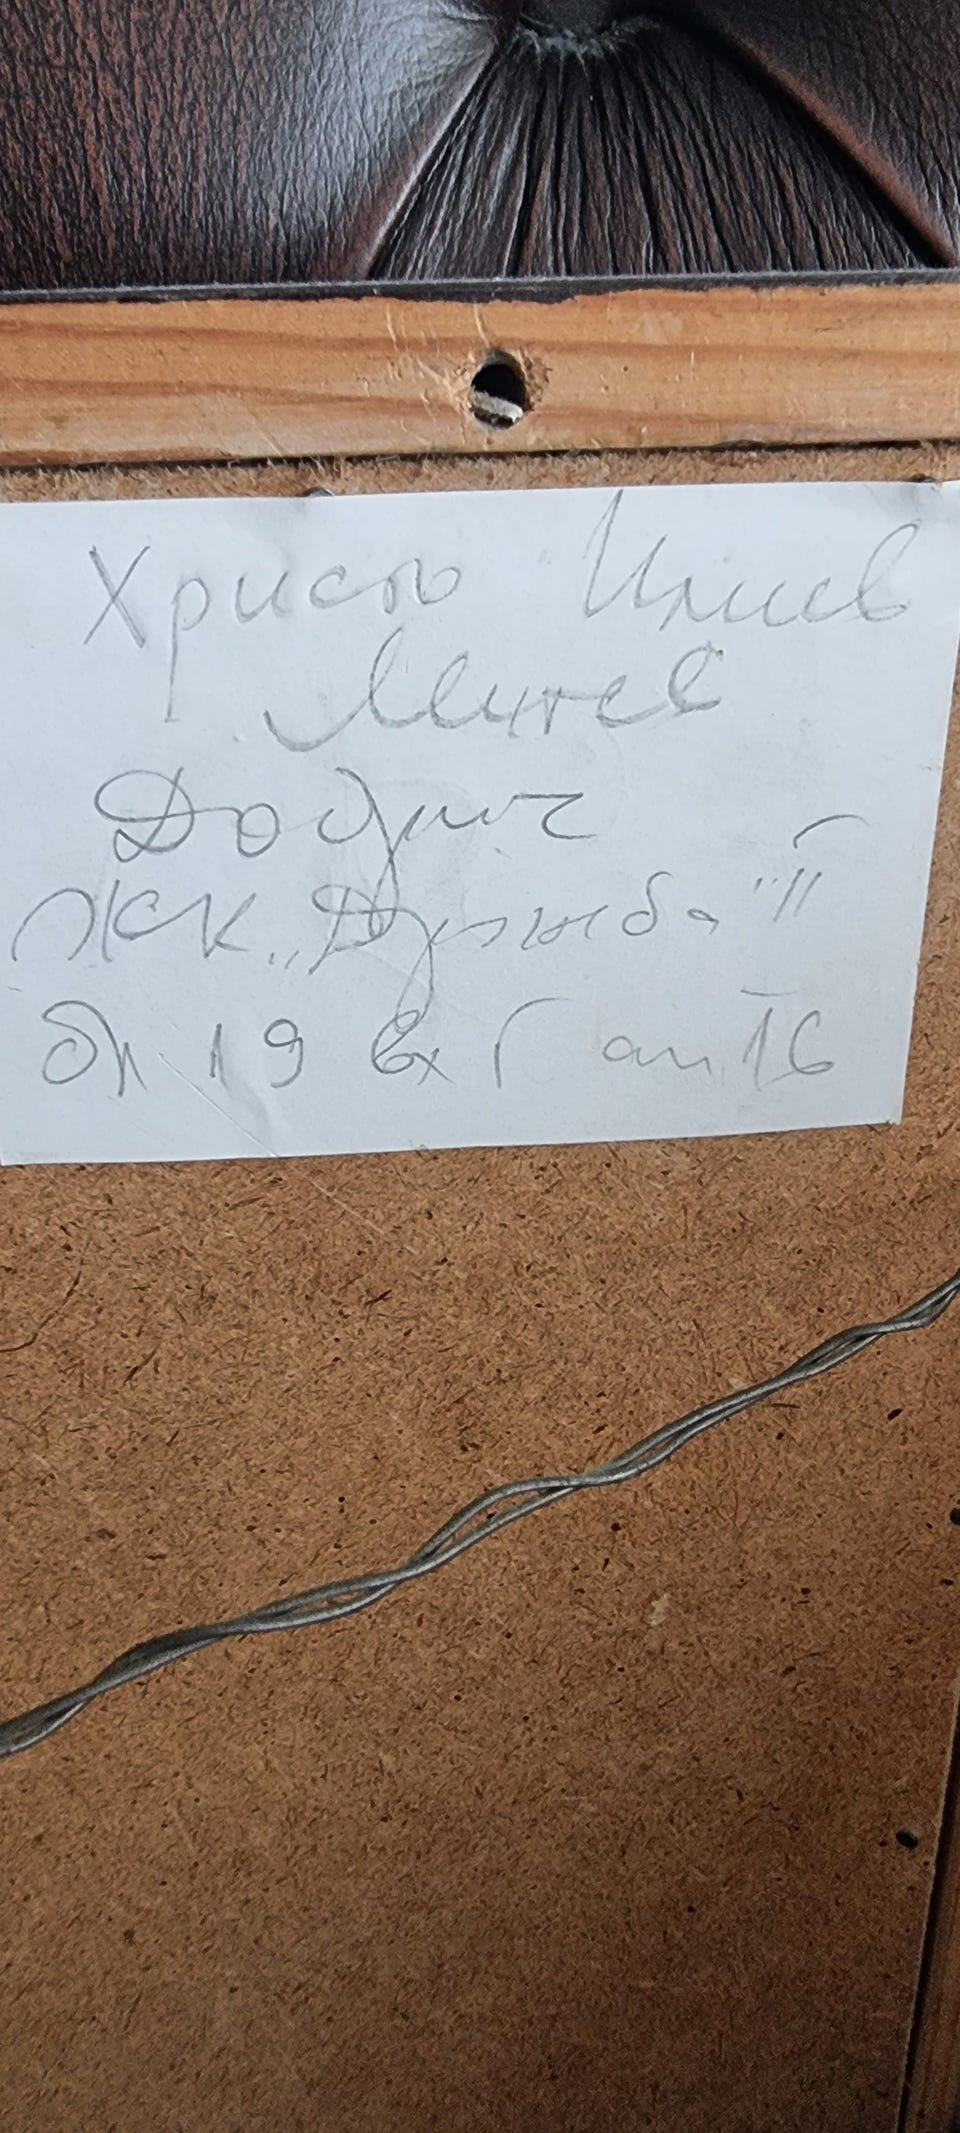 Христо Илиев
Минев
Добрич
ЖК „Дружба" II
бл 19 вх Г ап 16